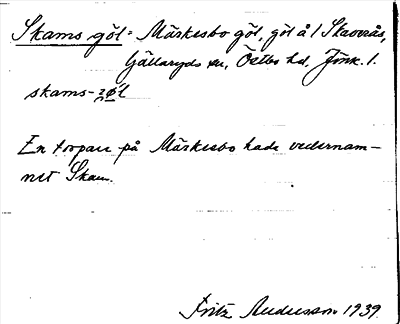 Skams göl = Märkesbo göl, göl å 1 Skaverås,
Gällaryds sn, Östbo hd, Jönk. l.
skams-ȷøl
En torpare på Märkesbo hade vedernam-
net Skam.
Fritz Andersson 1939